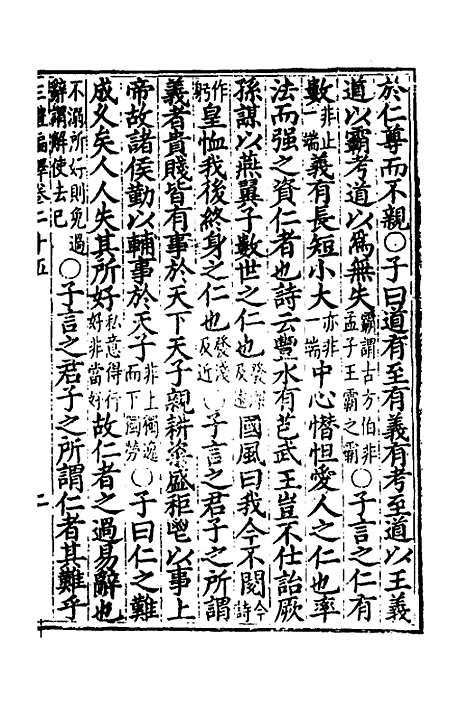 於仁尊而不親○子曰道有至有義有考至道以王義
道以霸考道以爲無失霸謂古方伯非孟子王霸之霸○子言之仁有
數非止一端義有長短小大亦非一端中心憯怛愛人之仁也率
法而强之資仁者也詩云豐水有芑武王豈不仕詒厥
孫謀以燕翼子數世之仁也發深及遠國風曰我今不閱今詩
作躬皇恤我後終身之仁也發淺及近○子言之君子之所謂
義者貴賤皆有事於天下天子親耕粢盛秬鬯以事上
帝故諸侯勤以輔事於天子非上獨逸而下獨勞○子曰仁之難
成久矣人人失其所好私意得行好非當好故仁者之過易辭也
不溺所則免過辭謂解使去已○子言之君子之所謂仁者其難乎
三禮編繹卷二十五 二